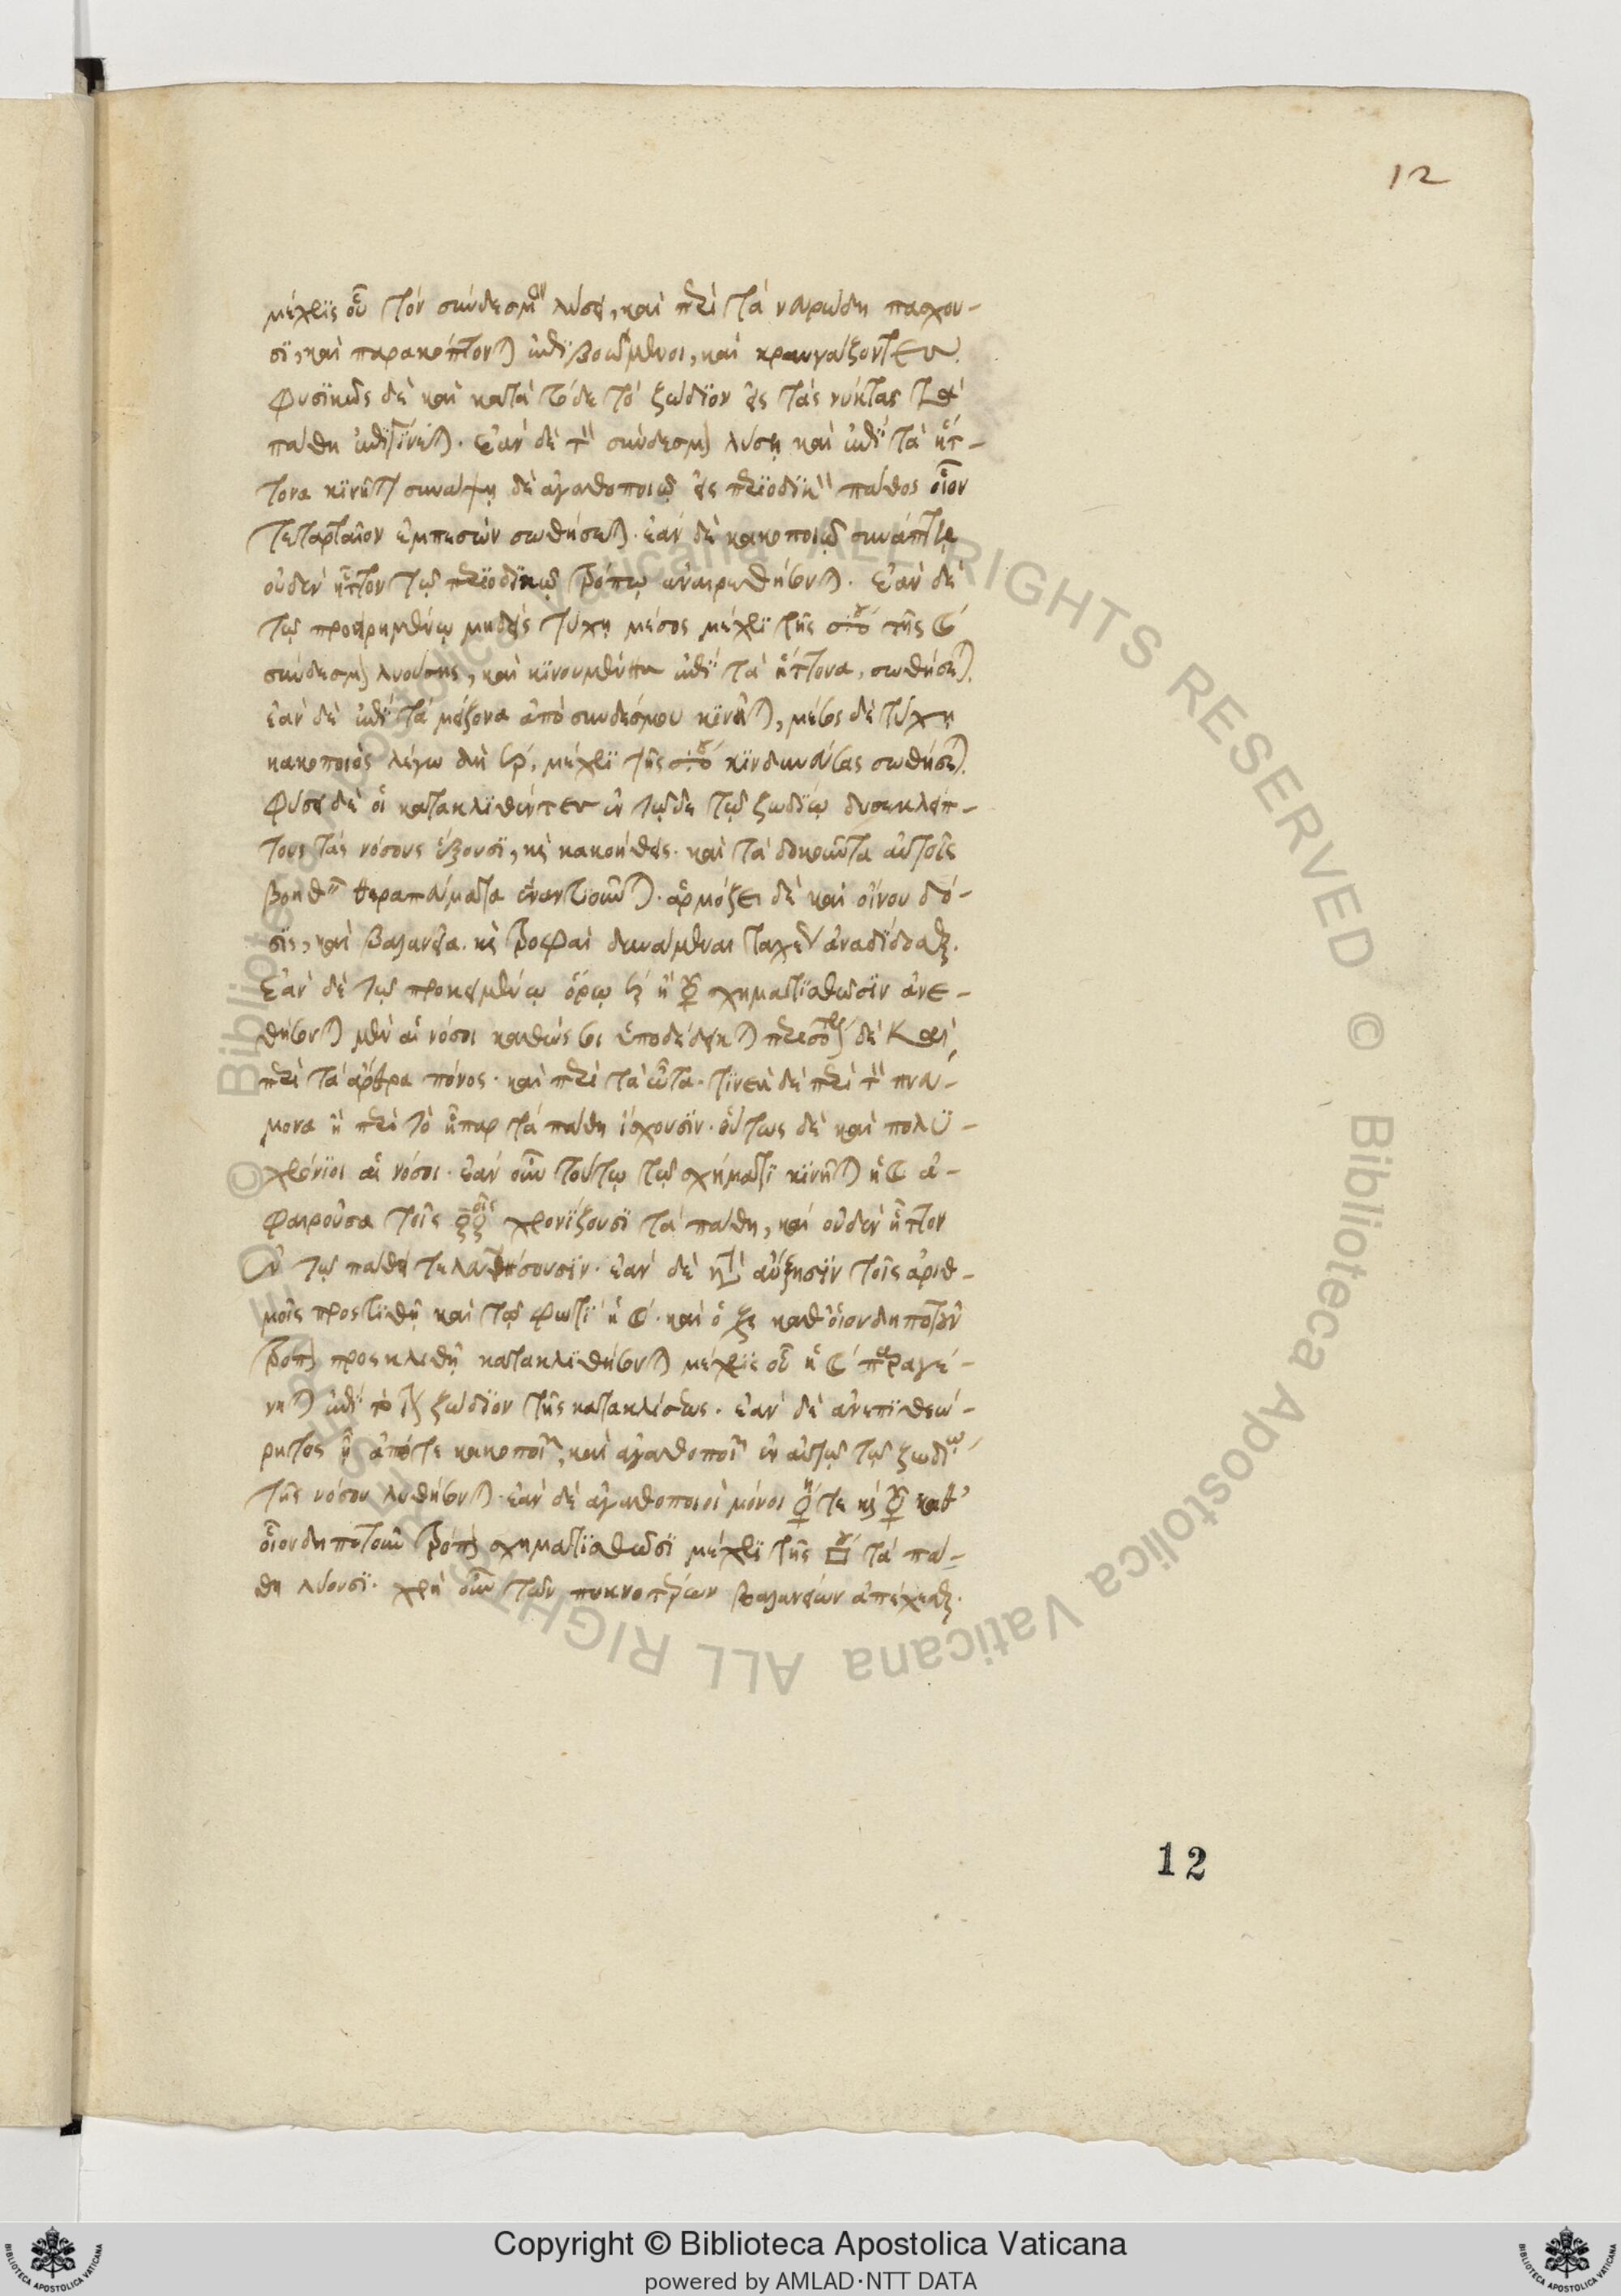 12
μέχρις οὗ τὸν σύνδεσμον λύσει, καὶ περὶ τὰ νευρώδη πασχου-
σι, καὶ παρακόπτονται ἐπιβοώμενοι, καὶ κραυγάζοντες.
φυσικῶς δὲ καὶ κατὰ τόδε τὸ ζώδιον εἰς τὰς νύκτας τὰ
πάθη ἐπιτείνεται. ἐὰν δὲ τὸν σύνδεσμον λύσῃ καὶ ἐπὶ τὰ ἥτ-
τονα κινῆται συνάψῃ δὲ ἀγαθοποιῷ εἰς περιοδικὸν πάθος οἷον
τεταρταῖον ἐμπεσὼν σωθήσεται. ἐὰν δὲ κακοποιῷ συνάπτῃ
οὐδὲν ἧττον τῷ περιοδικῷ τρόπῳ ἀναιρεθήσονται. ἐὰν δὲ
τῷ προειρημένῳ μηδεὶς τύχῃ μέσος μέχρι τῆς τῆς ☾
σύνδεσμον λυούσης, καὶ κινουμένης ἐπὶ τὰ ἥττονα, σωθήσεται.
ἐὰν δὲ ἐπὶ τὰ μείζονα ἀπὸ συνδέσμου κινῆται, μέσος δὲ τύχῃ
κακοποιὸς λέγω δὴ μέχρι τῆς κινδυνεύσας σωθήσεται.
φύσει δὲ οἱ κατακλιθέντες ἐν τῷδε τῷ ζωδίῳ δυσεκλείπ-
τους τὰς νόσους ἕξουσι, καὶ κακοήθεις. καὶ τὰ δοκοῦντα αὐτοῖς
βοηθεῖν θεραπεύματα ἐναντιοῦνται. ἁρμόζει δὲ καὶ οἴνου δό-
σις, καὶ βαλανεῖα. καὶ τροφαὶ δυνάμεναι ταχὺ ἀναδίδοσθαι.
ἐὰν δὲ τῷ προκειμένῳ ὅρῳ ♄ ἢ ☿ σχηματισθῶσιν ἀνε-
θήσονται μὲν αἱ νόσοι καθώς σοι ὑποδέδεικται δὲ καὶ
περὶ τὰ ἄρθρα πόνος. καὶ περὶ τὰ ὦτα. τινὲς δὲ περὶ τὸν πνεύ-
μονα ἢ περὶ τὸ ἧπαρ τὰ πάθη ἴσχουσιν. οὕτως δὲ καὶ πολυ-
χρόνιοι αἱ νόσοι. ἐὰν οὖν τούτῳ τῷ σχήματι κινῆται ἡ ☾ ἀ-
φαιροῦσα τοῖς χρονίζουσι τὰ πάθη, καὶ οὐδὲν ἧττον
ἐν τῷ πάθει τελευτήσουσιν. ἐὰν δὲ κατὰ αὔξησιν τοῖς ἀριθ-
μοῖς προστιθῇ καὶ τῷ φωτὶ ἡ ☾. καὶ ὁ καθ' οἱονδηποτοῦν
τρόπον προσκλιθῇ κατακλιθήσονται μέχρις οὗ ἡ ☾ παραγέ-
νηται ἐπὶ τὸ ζώδιον τῆς κατακλίσεως. ἐὰν δὲ ἀνεπιθεώ-
ρητος ᾖ ἀπό τε κακοποιῶν, καὶ ἀγαθοποιῶν ἐν αὐτῷ τῷ ζωδίῳ
τῆς νόσου λυθήσονται. ἐὰν δὲ ἀγαθοποιοὶ μόνοι ♀ τε καὶ ☿ καθ'
οἱονδηποτοῦν τρόπον σχηματισθῶσι μέχρι τῆς □ τὰ πά-
θη λύουσι. χρὴ οὖν τῶν πυκνοτέρων βαλανείων ἀπέχεσθαι.
12
© Biblioteca Apostolica Vaticana ALL RIGHTS RESERVED © Biblioteca Apostolica Vaticana ALL RIGHTS RESERVED
Copyright © Biblioteca Apostolica Vaticana
powered by AMLAD·NTT DATA
BIBLIOTECA APOSTOLICA VATICANA
BIBLIOTECA APOSTOLICA VATICANA